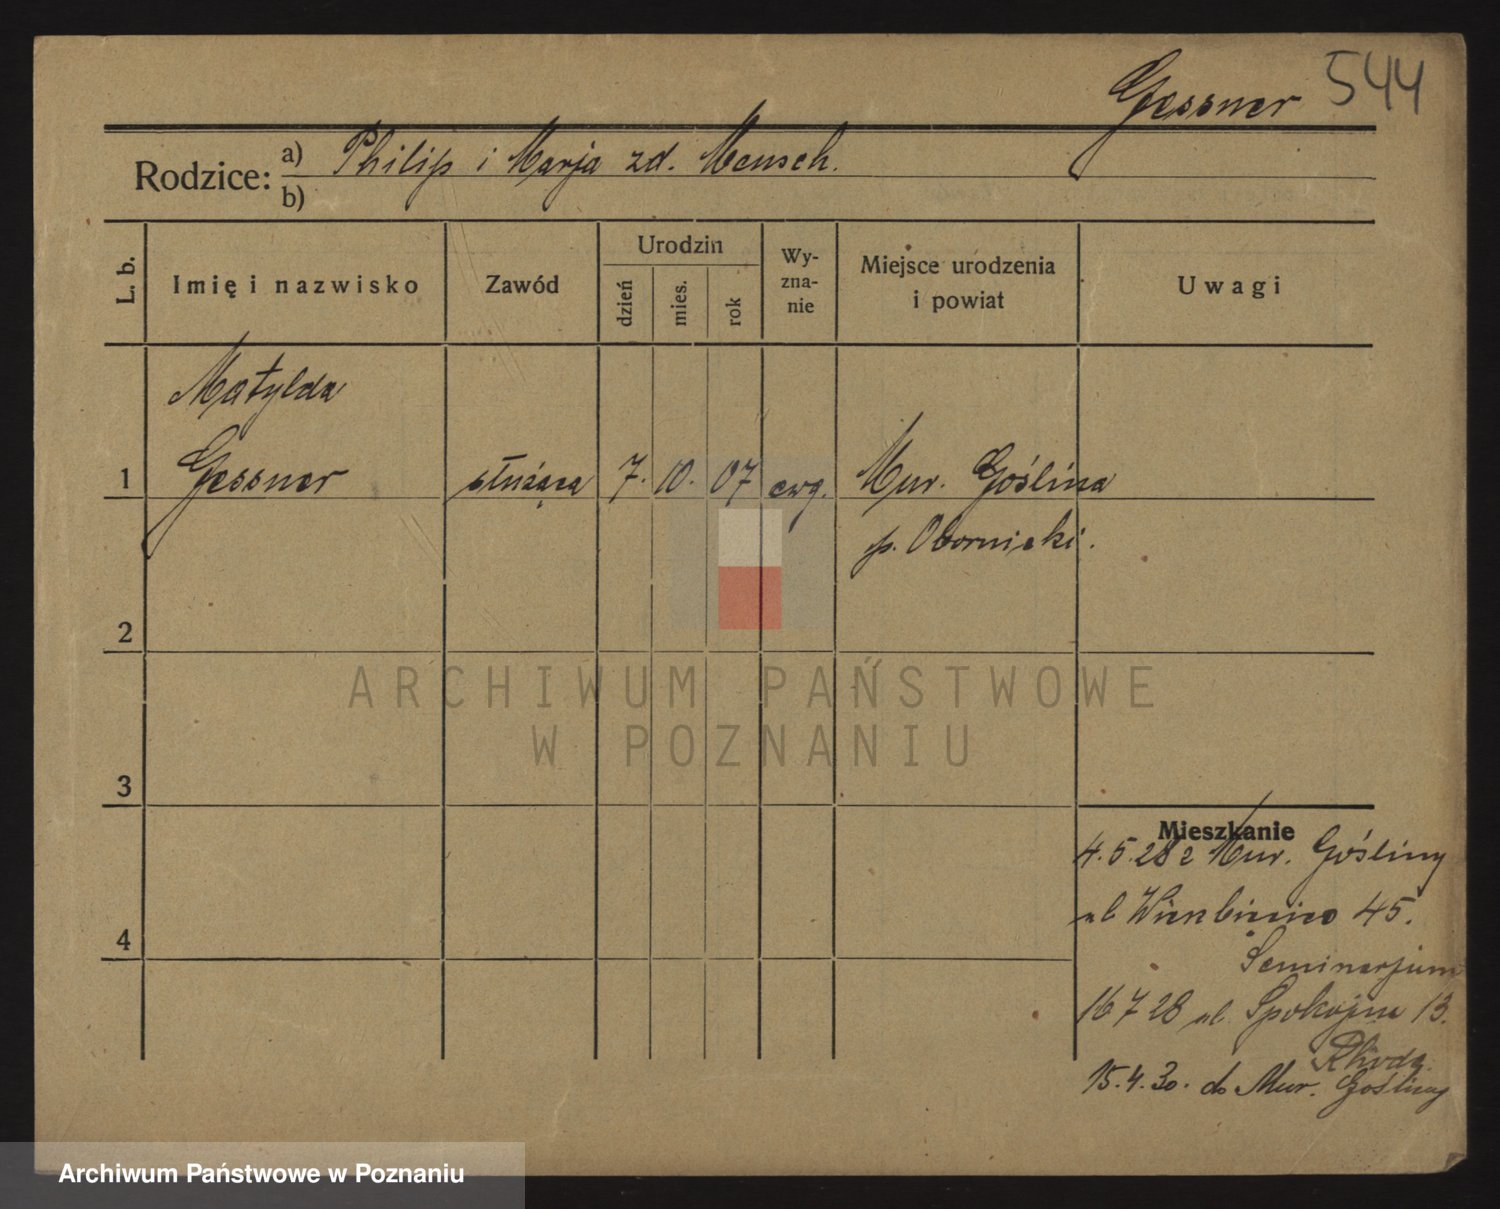 Gessner 544
Rodzice: a) Philip i Marja zd. Mensch.
b)
L. b.
Imię i nazwisko
Zawód
Urodzin
dzień
mies.
rok
Wy-
zna-
nie
Miejsce urodzenia
i powiat
Uwagi
Matylda
1 Gessner służąca 7. 10. 07 ewg. Mur. Goślina
p. Obornicki.
2
ARCHIWUM PAŃSTWOWE
W POZNANIU
3
Mieszkanie
4.5.28 z Mur. Gośliny
ul Wierzbięcice 45.
4
Seminarjum
16 7 28 ul. Spokojna 13.
Rhode.
15.4.30. do Mur. Gośliny
Archiwum Państwowe w Poznaniu